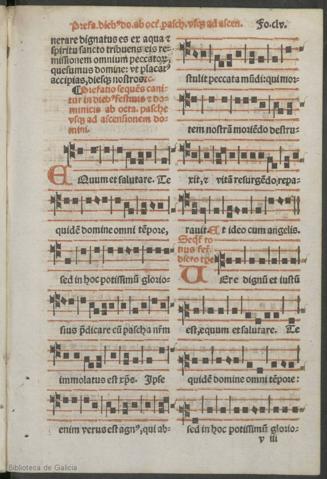 Prefa. dieb⁹ do. ab oct̃. pasch. vsq̃ ad ascen. Fo.clv.
nerare dignatus es ex aqua ⁊
spiritu sancto tribuens eis re-
missionem omnium peccatoꝝ:
quesumus domine: vt placat⁹
accipias, diesq̃ nostros ⁊c.
Prefatio sequẽs cani-
tur in dieb⁹ festiuis ⁊ do-
minicis ab octa. pasche
vsq̃ ad ascensionem do-
mini.
EQuum et salutare. Te
quidẽ domine omni tẽpore,
sed in hoc potissimũ glorio-
sius p̃dicare cũ pascha nr̃m
immolatus est xp̃s. Ipse
enim verus est agn⁹, qui ab-
stulit peccata mũdi: qui mor-
tem nostrã moriẽdo destru-
xit, ⁊ vitã resurgẽdo, repa-
rauit. Et ideo cum angelis.
VEre dignũ et iustũ
est, equum et salutare. Te
quidẽ domine omni tẽpore:
sed in hoc potissimũ glorio-
v iii
Biblioteca de Galicia